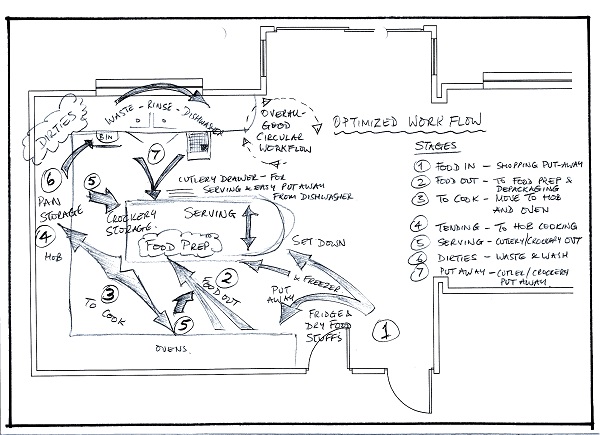 OPTIMIZED WORK FLOW
STAGES
1 FOOD IN - SHOPPING PUT-AWAY
2 FOOD OUT - TO FOOD PREP &
DEPACKAGING
3 TO COOK - MOVE TO HOB
AND OVEN
4 TENDING - TO HOB COOKING
5 SERVING - CUTLERY/CROCKERY OUT
6 DIRTIES - WASTE & WASH
7 PUT AWAY - CUTLER/CROCKERY
PUT AWAY
DIRTIES
WASTE - RINSE - DISHWASHER
BIN
OVERALL-
GOOD
CIRCULAR
WORKFLOW
7
6
5
CUTLERY DRAWER - FOR
SERVING & EASY PUT AWAY
FROM DISHWASHER
PAN
STORAGE
CROCKERY
STORAGE.
SERVING
4
HOB
FOOD PREP
SET DOWN
3
TO COOK
2
FOOD OUT
5
PUT
AWAY
& FREEZER
FRIDGE &
DRY FOOD
STUFFS
1
OVENS